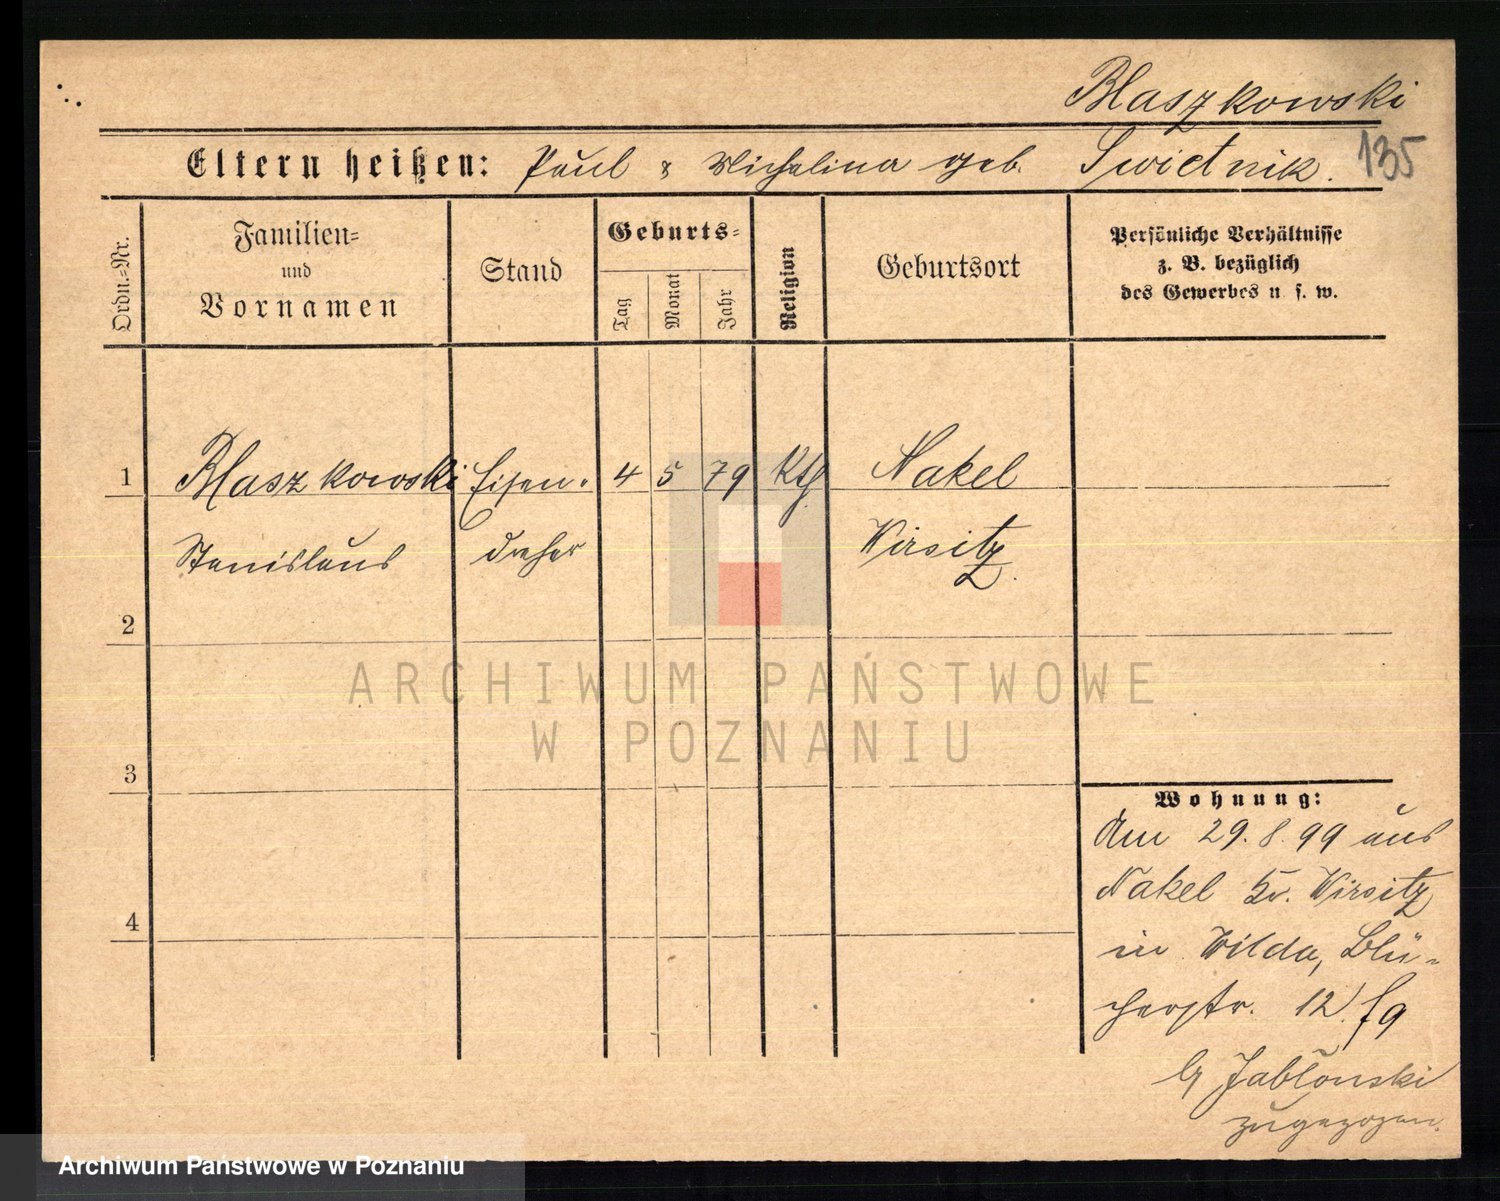 Blaszkowski
Eltern heißen: Paul & Michalina geb. Swietnik. 135
Ordn.-Nr.
Familien-
und
Vornamen
Stand
Geburts-
Tag
Monat
Jahr
Religion
Geburtsort
Persönliche Verhältnisse
z. B. bezüglich
des Gewerbes u. s. w.
1 Blaszkowski Eisen- 4 5 79 Kth Nakel
Stanislaus dreher Wirsitz.
2
ARCHIWUM PAŃSTWOWE
W POZNANIU
3
Wohnung:
Am 29.8.99 aus
Nakel Kr. Wirsitz
4
in Wilda, Blü-
cherstr. 12
b/ Jablonski
zugezogen.
Archiwum Państwowe w Poznaniu